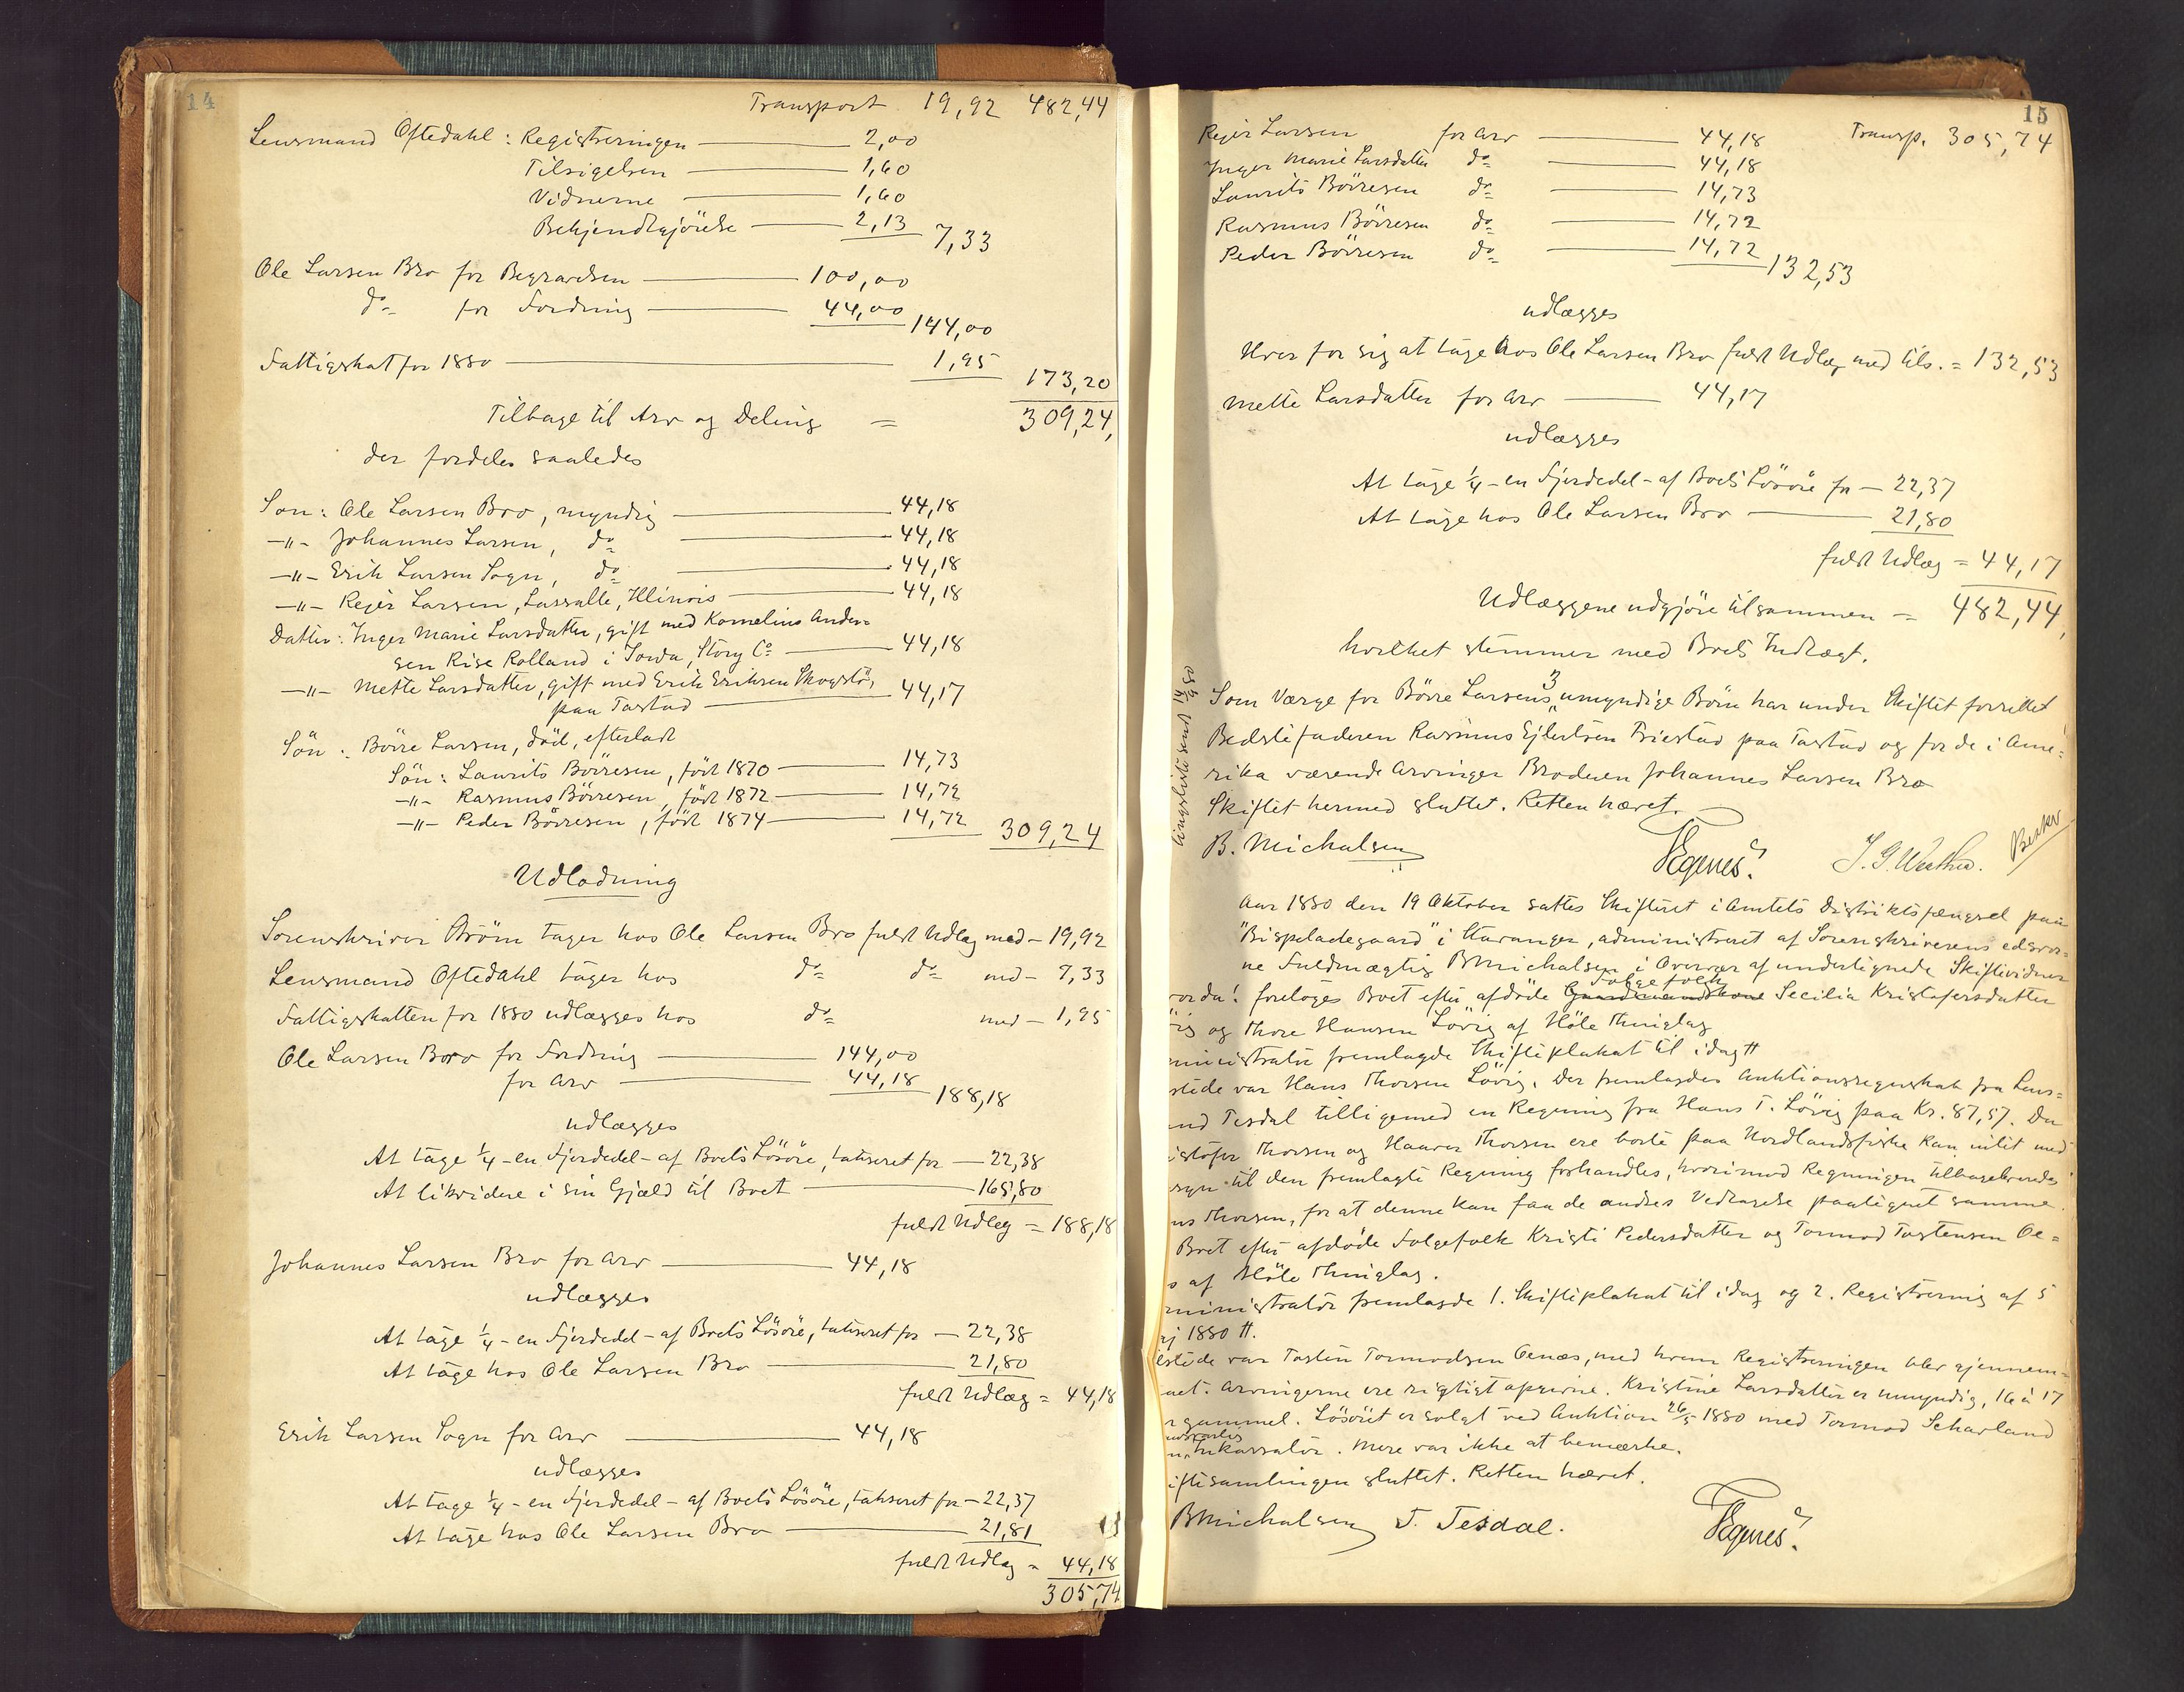 14
Transport 19,92 482,44
Lensmand Oftedahl: Registreringen — 2,00
Tilsigelsen — 1,60
Vidnerne — 1,60
Bekjendtgjörelse — 2,13 7,33
Ole Larsen Bro for Begravelsen — 100,00
do for Fordring — 44,00 144,00
Fattigskat for 1880 — 1,95
173,20
Tilbage til Arv og Deling = 309,24,
der fordeles saaledes
Søn: Ole Larsen Bro, myndig — 44,18
—"— Johannes Larsen, do — 44,18
—"— Erik Larsen Sogn, do — 44,18
—"— Rejer Larsen, Lassalle, Illinois — 44,18
Datter: Inger Marie Larsdatter, gift med Kornelius Ander=
sen Rise Rolland i Iowa, Story Co — 44,18
—"— Mette Larsdatter, gift med Erik Eriksen Skogstö,
paa Tastad — 44,17
Sön: Börre Larsen, död, efterladt
Sön: Laurits Börresen, född 1870 — 14,73
—"— Rasmus Börresen, född 1872 — 14,72
—"— Peder Börresen, född 1874 — 14,72 309,24
Udlodning
Sorenskriver Ström tager hos Ole Larsen Bro fuldt Udlæg med — 19,92
Lensmand Oftedahl tager hos do do med — 7,33
Fattigskatten for 1880 udlægges hos do med — 1,95
Ole Larsen Bro for Fordring — 144,00
for Arv — 44,18 188,18
udlægges
At tage 1/4 - en Fjerdedel - af Boets Lösöre, takseret for — 22,38
At likvidere i sin Gjæld til Boet — 165,80
fuldt Udlæg = 188,18
Johannes Larsen Bro for Arv — 44,18
udlægges
At tage 1/4 - en Fjerdedel - af Boets Lösöre, takseret for — 22,38
At tage hos Ole Larsen Bro — 21,80
fuldt Udlæg = 44,18
Erik Larsen Sogn for Arv — 44,18
udlægges
At tage 1/4 - en Fjerdedel - af Boets Lösöre, takseret for — 22,37
At tage hos Ole Larsen Bro — 21,81
fuldt Udlæg = 44,18
305,74
15
Rejer Larsen for Arv — 44,18 Transp. 305,74
Inger Marie Larsdatter do — 44,18
Laurits Börresen do — 14,73
Rasmus Börresen do — 14,72
Peder Börresen do — 14,72 132,53
udlægges
Hver for sig at tage hos Ole Larsen Bro fuldt Udlæg med tils. = 132,53
Mette Larsdatter for Arv — 44,17
udlægges
At tage 1/4 - en Fjerdedel - af Boets Lösöre for — 22,37
At tage hos Ole Larsen Bro — 21,80
fuldt Udlæg = 44,17
Udlæggene udgjöre tilsammen = 482,44,
hvilket stemmer med Boets Indtægt.
Som Værge for Börre Larsens 3 umyndige Börn har under Skiftet forrettet
Bedstefaderen Rasmus Ejlertsen Friestad paa Tastad og for de i Ame=
rika værende Arvinger Broderen Johannes Larsen Bro
Skiftet hermed sluttet. Retten hævet.
B. Michalsen Egenes. J. G. Wæthe.
Aar 1880 den 19 Oktober sattes Skifteret i Amtets Distriktsfængsel paa
"Bispeladegaard" i Stavanger, administreret af Sorenskriverens edsvor=
ne Fuldmægtig B Michalsen i Overvær af undertegnede Skiftevidner
vorda! foretoges Boet efter afdöde Gaardmandskone Folgefolk Secilia Kristofersdatter
ig og Thore Hansen Lövig af Höle Thinglag
ministrator fremlagde Skifteplakat til idag #
stede var Hans Thorsen Lövig. Der fremlagdes Auktionsregnskab fra Lens=
nd Tesdal tilligemed en Regning fra Hans T. Lövig paa Kr. 87,57. Da
istofer Thorsen og Haaver Thorsen ere borte paa Nordlandsfiske kan intet med
syn til den fremlagte Regning forhandles, hvorimod Regningen tilbageleveredes
ns Thorsen, for at denne kan faa de andres Vedtagelse paategnet samme.
Boet efter afdöde Folgefolk Kristi Pedersdatter og Tormod Tostensen Oe=
s af Höle Thinglag.
ministrator fremlagde 1. Skifteplakat til idag og 2. Registrering af 5
aj 1880 #.
estede var Tosten Tormodsen Oenæs, med hvem Registreringen blev gjennem=
aet. Arvingerne ere rigtigt opgivne. Kristine Larsdatter er umyndig, 16 à 17
r gammel. Lösöret er solgt ved Auktion 26/5 1880 med Tormod Scharland
Inkassator. Mere var ikke at bemærke.
iftesamlingen sluttet. Retten hævet.
B Michalsen T. Tesdal. Egenes.